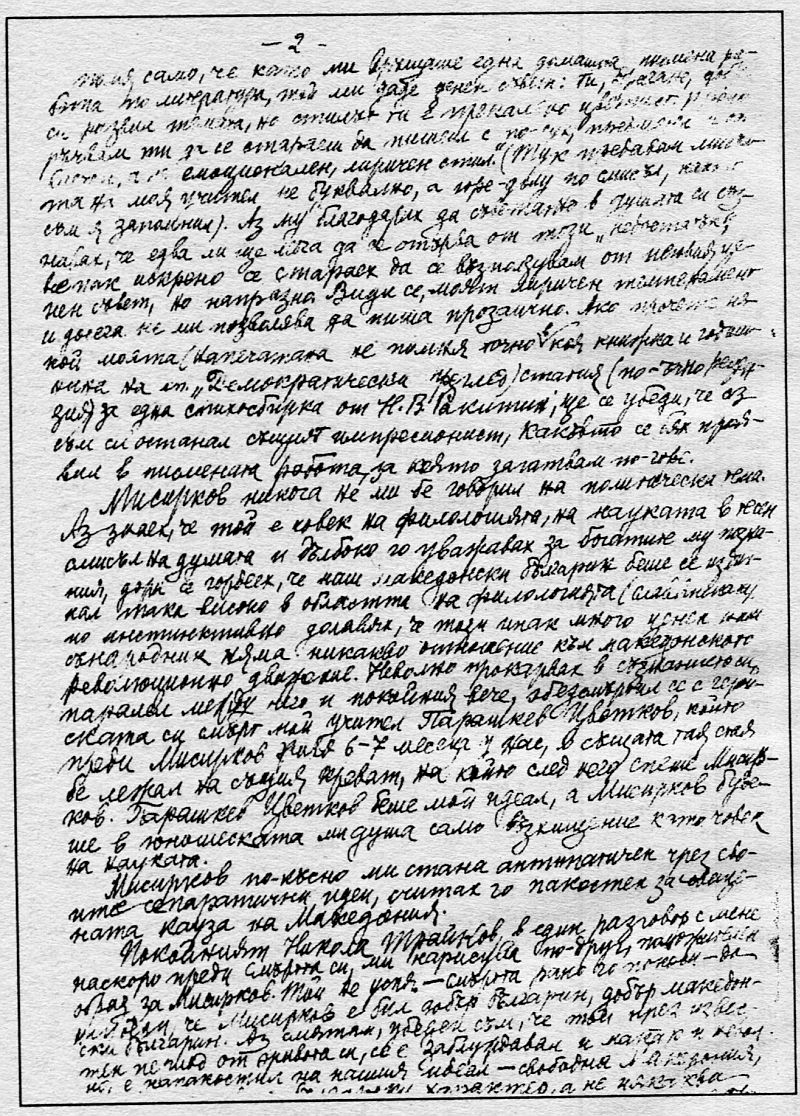 - 2 -
само, че като ми връщаше една домашна писмена ра-
бота по литература, той ми даде ценен съвет: Ти, Драган, добре
си развил темата, но стилът ти е прекалено цветист.
ти да се стараеш да пишеш с по-сух,
а не емоционален, лиричен стил." (Тук предавам
та на моя учител не буквално, а горе-долу по смисъл, както
съм я запомнил). Аз му благодарих
че едва ли ще мога да се отърва от този „недостатък",
все пак искрено се стараех да се възползувам от неговия це-
нен съвет, но напразно. Види се, моят лиричен темперамент
и досега не ми позволява да пиша прозаично. Ако прочете ня-
кой моята (напечатана не помня точно в коя книжка и годиш-
нина на сп. „Демократически преглед") статия (по-точно рецен-
зия) за една стихосбирка от Н. В. Ракитин, ще се убеди, че аз
съм си останал същият импресионист, какъвто се бях проя-
вил в писмената работа, за която загатвам по-горе.
Мисирков никога не ми бе говорил на политическа тема.
Аз знаех, че той е човек на филологията, на науката в тесен
смисъл на думата и дълбоко го уважавах за богатите му позна-
ния, дори се гордеех, че наш македонски българин беше се издиг-
нал така високо в областта на филологията (славянската),
но инстинктивно долавях, че този инак много ценен
сънародник няма никакво отношение към македонското
революционно движение. Неволно прокарвах в съзнанието си
паралел между него и покойния вече, обезсмъртил се с герой-
ската си смърт мой учител Парашкев Цветков, който
преди Мисирков 6-7 месеца у нас, в същата тая стая
бе лежал на същия креват, на който след него спеше Мисир-
ков. Парашкев Цветков беше мой идеал, а Мисирков буде-
ше в юношеската ми душа само възхищение като човек
на науката.
Мисирков по-късно ми стана антипатичен чрез сво-
ите сепаратични идеи, считах го пакостен за свеще-
ната кауза на Македония.
Покойният Никола Трайков, в един разговор с мене
наскоро преди смъртта си, ми нарисува по-друг,
образ за Мисирков. Той не успя — смъртта рано го покоси — да
че Мисирков е бил добър българин, добър македон-
ски българин. Аз смятам, убеден съм, че той през извес-
тен период от живота си, се е заблуждавал и макар и
е напакостил на нашия идеал — свободна Македония,
характер, а не някаква